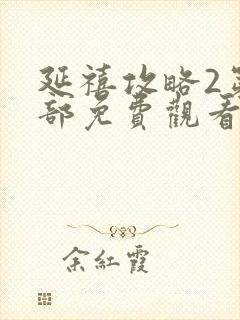 延禧攻略2第
部免費觀看
余紅霞